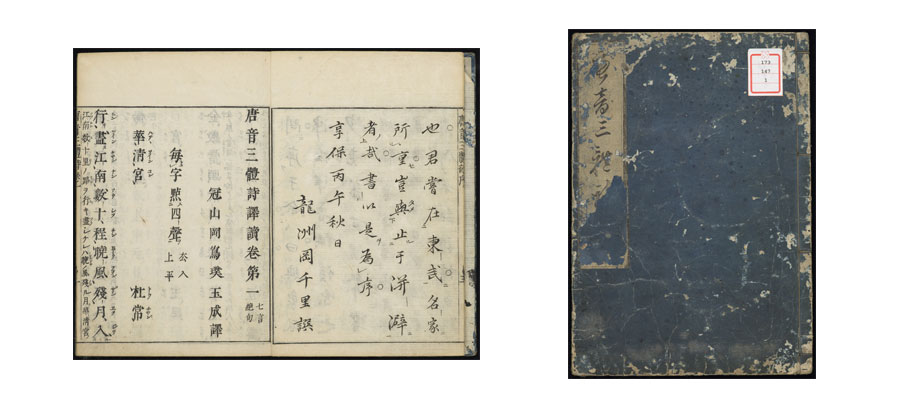 也君嘗在東武名家
所重豈與止于洴澼
者哉書以是爲序
享保丙午秋日
龍洲岡千里譔
唐音三體詩譯讀卷第一 七言絶句
冠山岡嶌璞玉成譯
每字點四聲 去入上平
華清宮 杜常
行盡江南數十程曉風殘月入
唐音三體
173
187
1